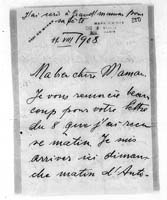 J'ai écrit à Grand'maman pour
sa fête
VIII 1908
Ma bien chère Maman,
Je vous remercie beau-
coup pour votre lettre
du 8 que j'ai reçu
ce matin. Je suis
arrivé ici diman-
che matin d'